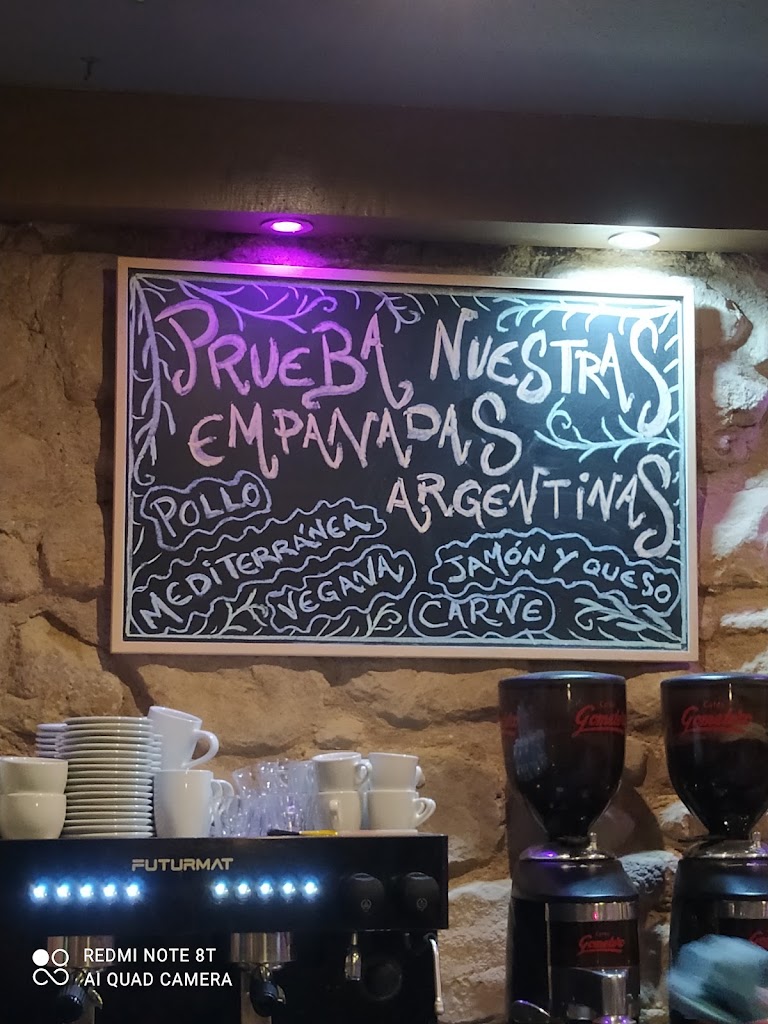 PRUEBÁ NUESTRAS
EMPANADAS
ARGENTINAS
POLLO
MEDITERRÁNEA
VEGANA
JAMÓN Y QUESO
CARNE
FUTURMAT
REDMI NOTE 8T
AI QUAD CAMERA